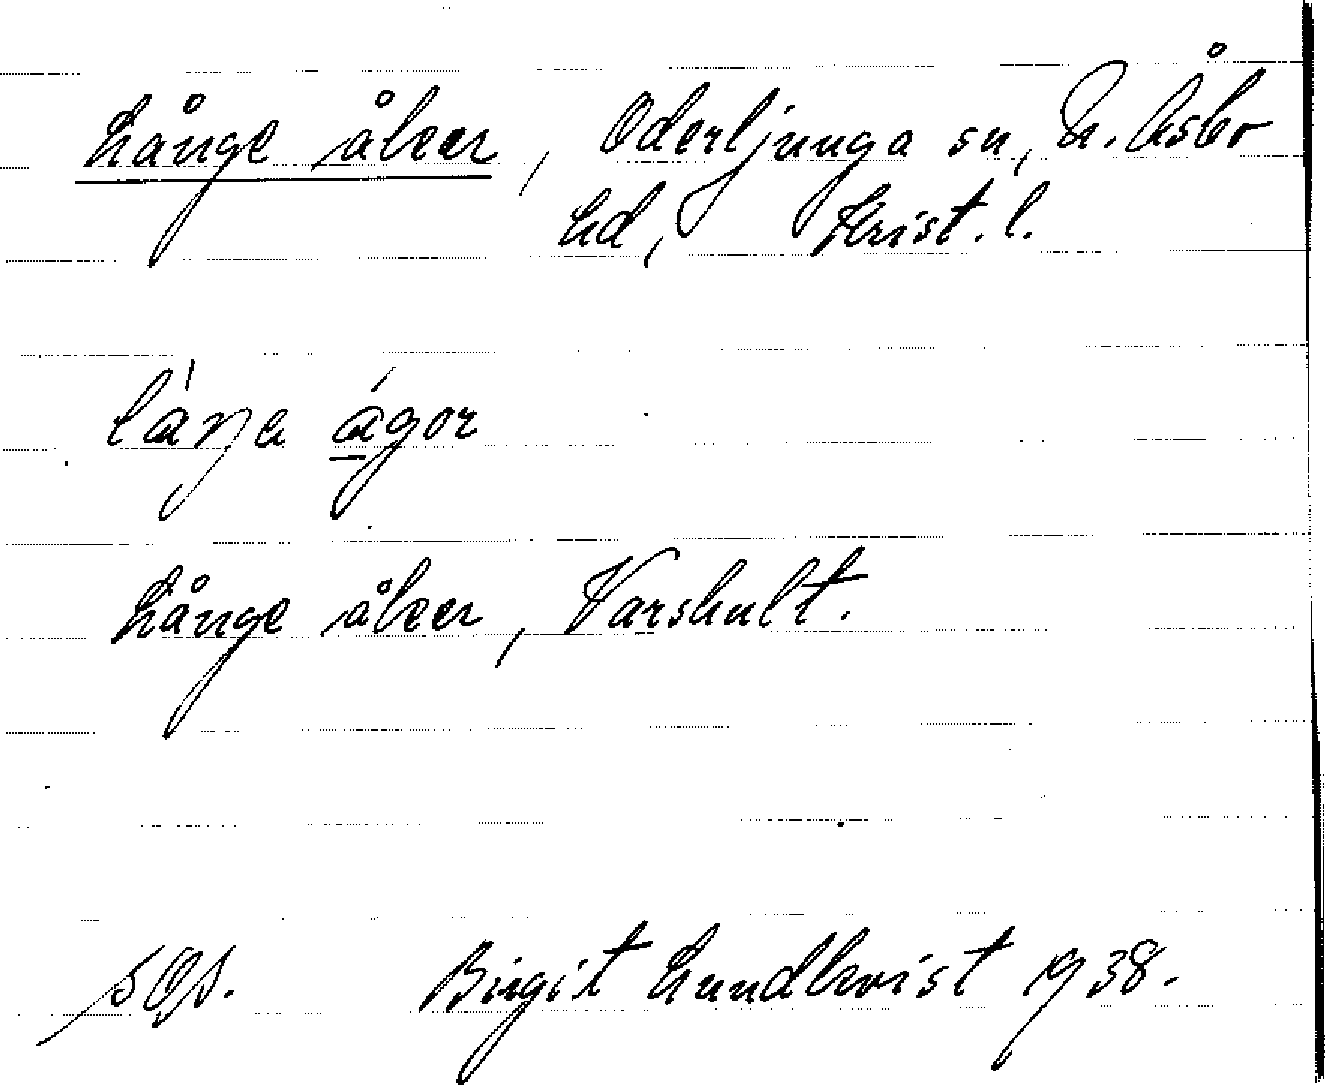 Långe åker, Oderljunga sn, N. Åsbo
hd, Krist. l.
låŋa ågor
Långe åker, Varshult.
sgs. Birgit Lundkvist 1938.